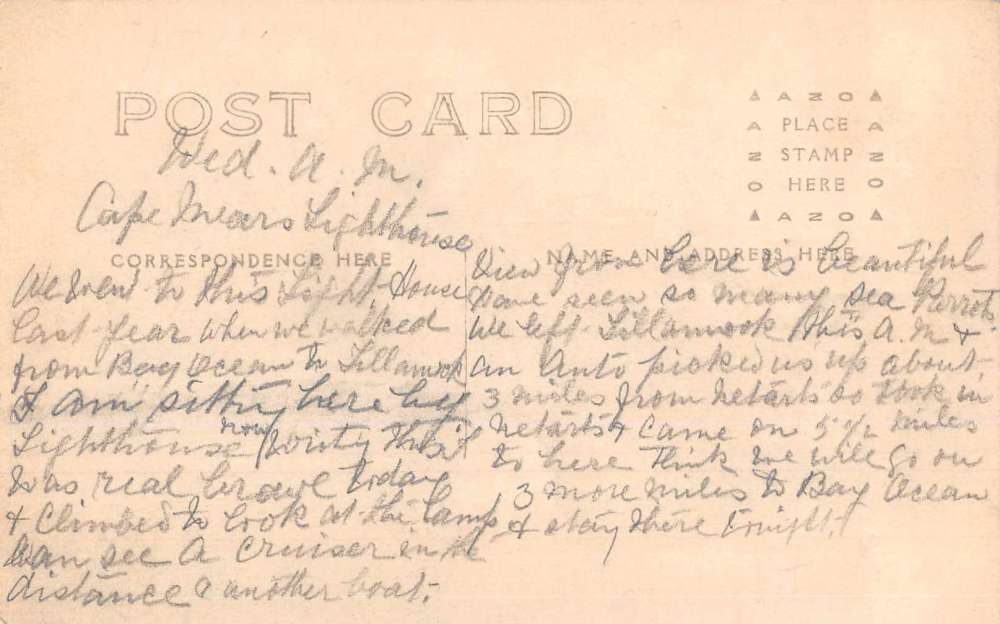 POST CARD
A AZO A
A PLACE A
Z STAMP Z
O HERE O
A AZO A
Wed. A. M.
Cape Mears Lighthouse
CORRESPONDENCE HERE
NAME AND ADDRESS HERE
We went to this Light House
last year when we walked
from Bay Ocean to Tillamook
I am sitting here by
Lighthouse now writing this I
was real brave today
& climbed to look at the lamp
Can see a cruiser in the
distance & another boat.
View from here is beautiful
have seen so many sea Parrots.
We left Tillamook this A.M &
an Auto picked us up about
3 miles from Netarts so took in
Netarts & came on 5 1/2 miles
to here think we will go on
3 more miles to Bay Ocean
& stay there tonight.